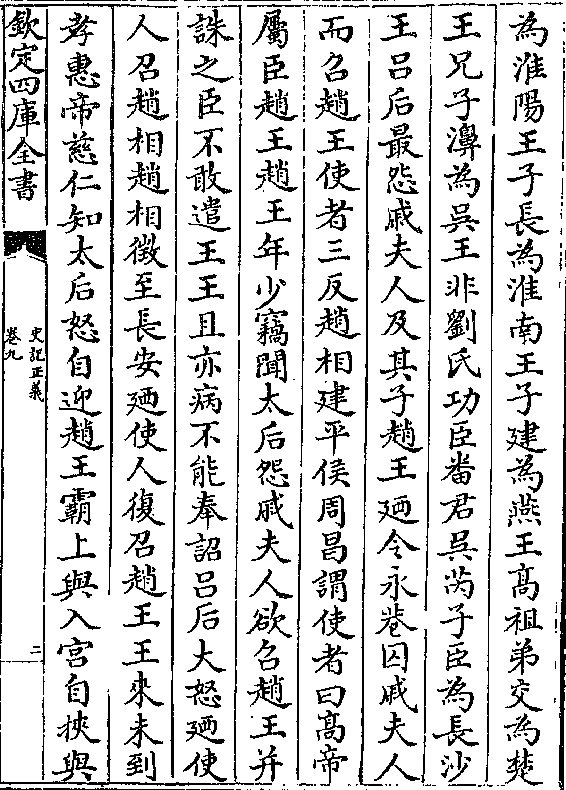 為淮陽王子長為淮南王子建為燕王髙祖弟交為楚
王兄子濞為吳王非劉氏功臣番君吳芮子臣為長沙
王吕后最怨戚夫人及其子趙王廼令永巷囚戚夫人
而召趙王使者三反趙相建平侯周昌謂使者曰髙帝
屬臣趙王趙王年少竊聞太后怨戚夫人欲召趙王并
誅之臣不敢遣王王且亦病不能奉詔吕后大怒廼使
人召趙相趙相徴至長安廼使人復召趙王王來未到
孝惠帝慈仁知太后怒自迎趙王霸上與入宫自挾與
欽定四庫全書
史記正義
卷九
二